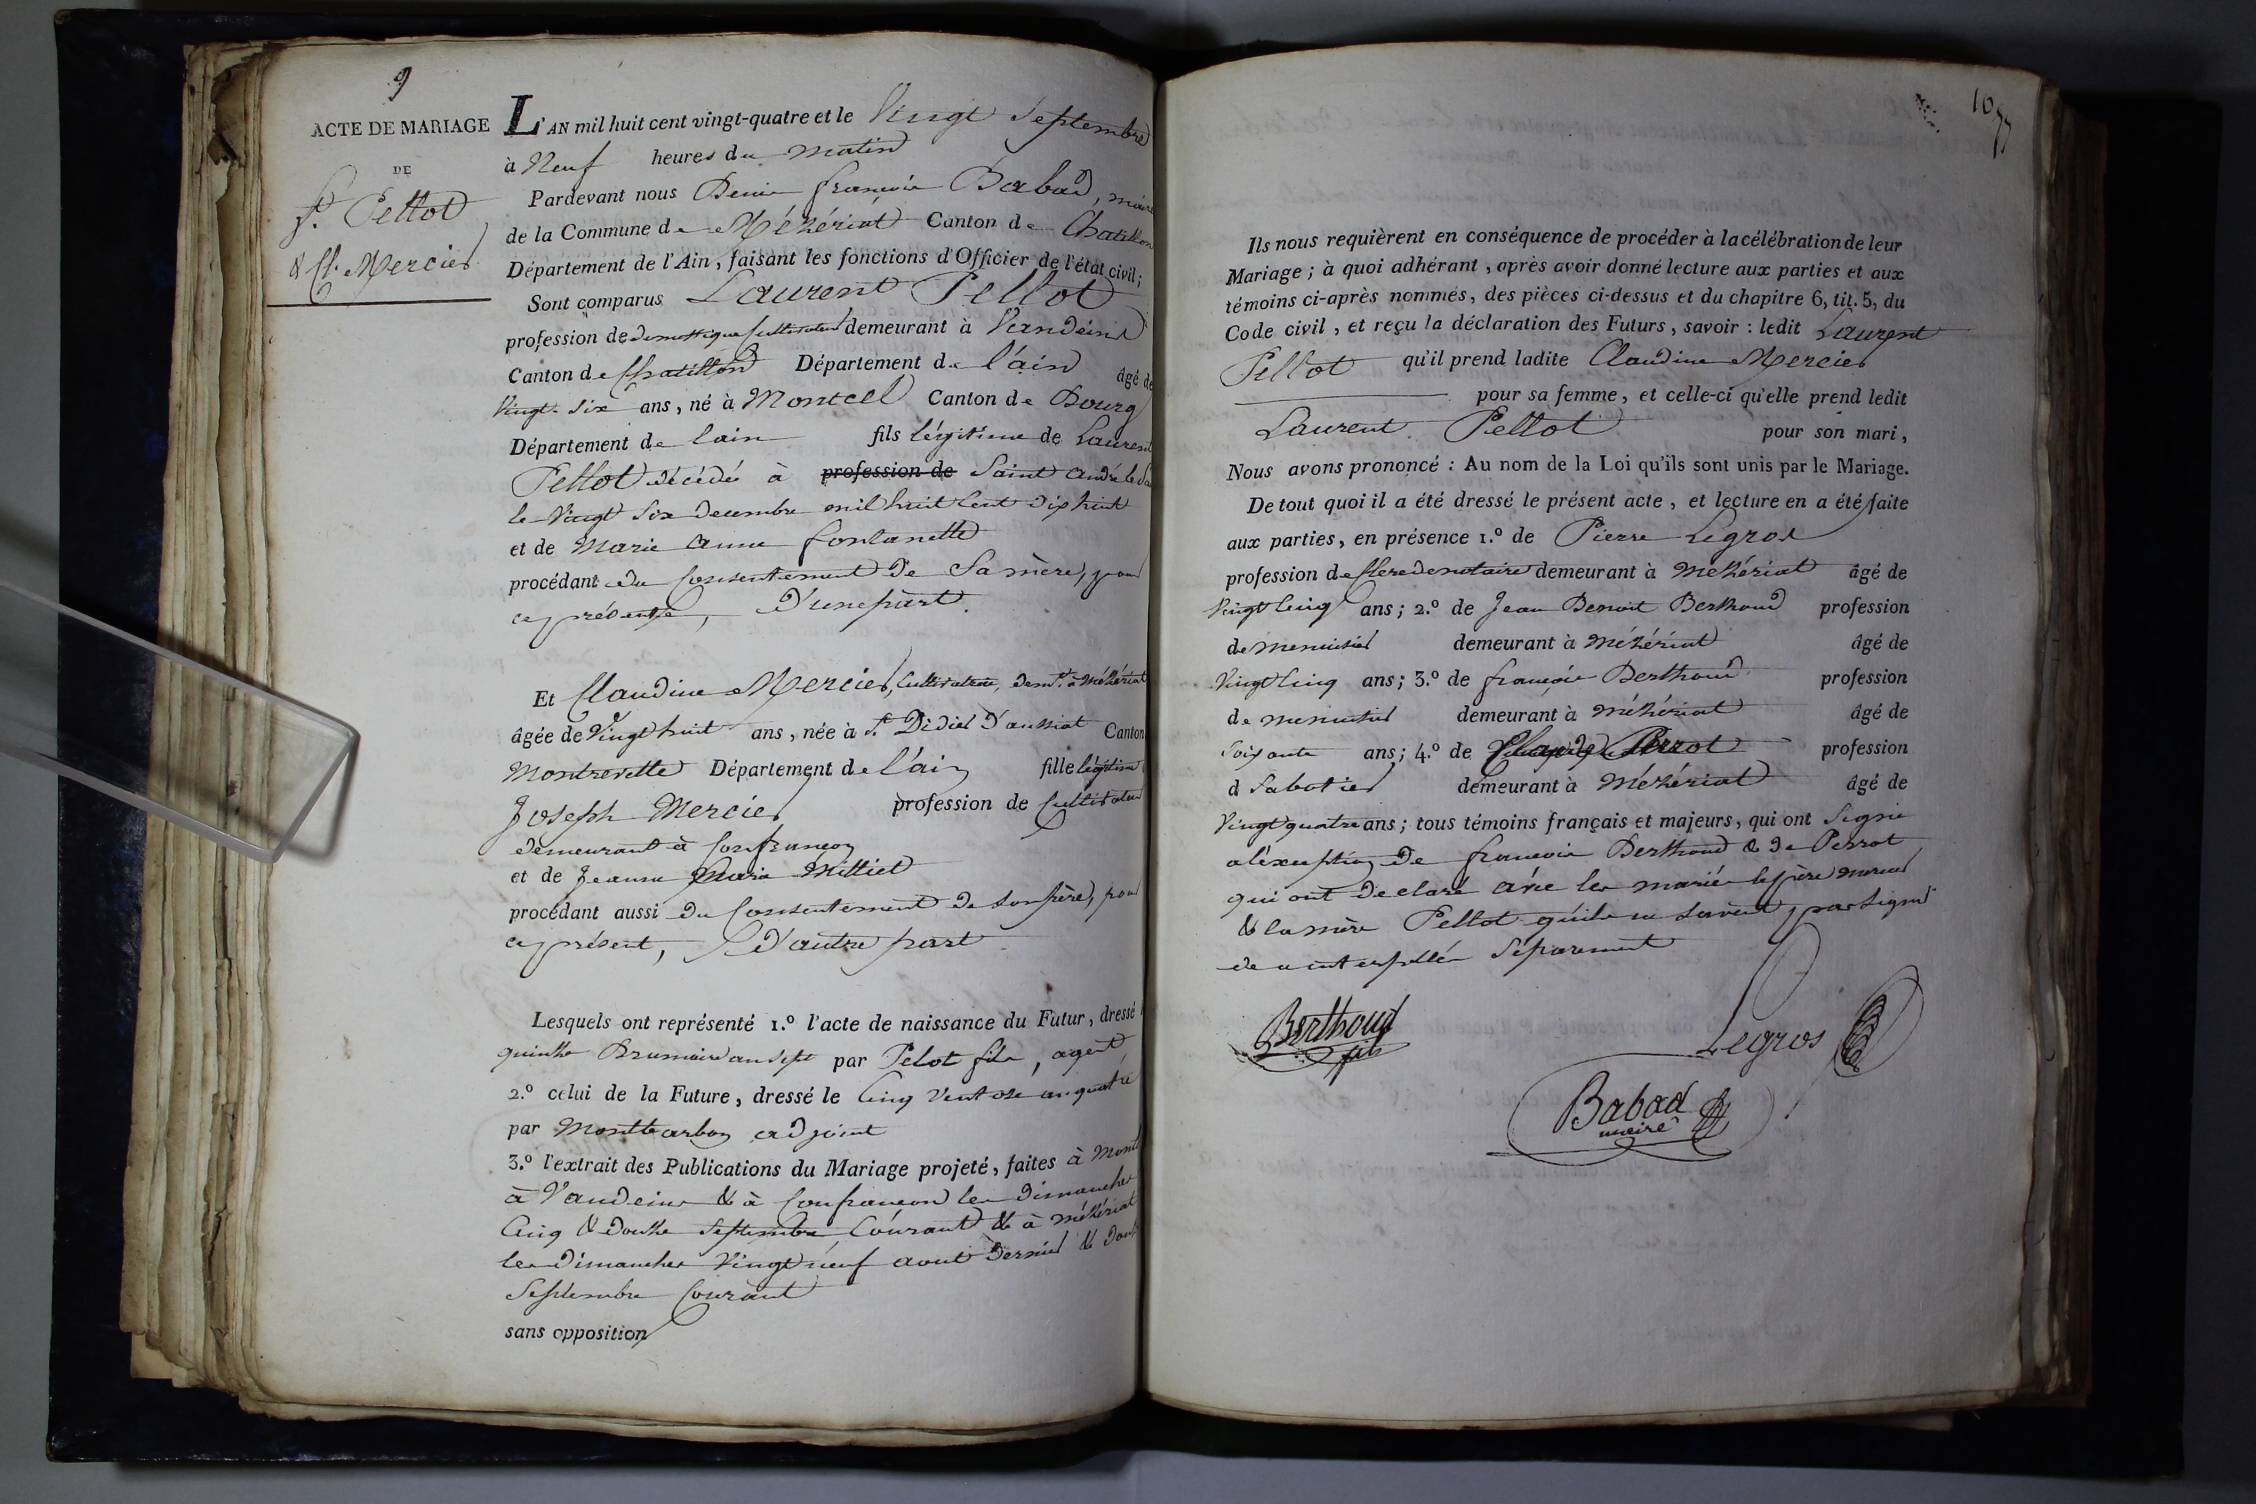 9
ACTE DE MARIAGE
DE
Pellot
& Cl. Mercier
L'AN mil huit cent vingt-quatre et le Vingt Septembre
à Neuf heures du matin
Pardevant nous Denis françois Babad, maire
de la Commune de Mézériat Canton de Chatillon
Département de l'Ain, faisant les fonctions d'Officier de l'état civil;
Sont comparus Laurent Pellot
profession de domestique Cultivateur demeurant à Vandeins
Canton de Chatillon Département de l'ain âgé de
Vingt-Six ans, né à Montcel Canton de Bourg
Département de lain fils légitime de Laurent
Pellot décédé à profession de Saint andré le
le Vingt Six Decembre mil huit Cent dix huit
et de Marie anne fontanette
procédant du Consentement de Sa mère, pour
ce présente, D'une part.
Et Claudine Mercier, Cultivatrice, demt. à Mézériat
âgée de Vingt huit ans, née à St. Didier D'aussiat Canton
Montrevelle Département de l'ain fille légitime
Joseph Mercier profession de Cultivateur
demeurant à Confrançon
et de Jeanne Marie Milliet
procédant aussi du Consentement de son père, pour
ce présent, D'autre part
Lesquels ont représenté 1.º l'acte de naissance du Futur, dressé
quinze Brumaire an sept par Pelot fils, agent
2.º celui de la Future, dressé le Cinq Ventose an quatre
par Montbarbon adjoint
3.º l'extrait des Publications du Mariage projeté, faites à Mont
à Vandeins & à Confrançon les Dimanches
Cinq & douze Septembre Courant & à Mézériat
les Dimanches Vingt neuf aout Dernier & douze
Septembre Courant
sans opposition
10
77
Ils nous requièrent en conséquence de procéder à la célébration de leur
Mariage; à quoi adhérant, après avoir donné lecture aux parties et aux
témoins ci-après nommés, des pièces ci-dessus et du chapitre 6, tit. 5, du
Code civil, et reçu la déclaration des Futurs, savoir: ledit Laurent
Pellot qu'il prend ladite Claudine Mercier
pour sa femme, et celle-ci qu'elle prend ledit
Laurent Pellot pour son mari,
Nous avons prononcé: Au nom de la Loi qu'ils sont unis par le Mariage.
De tout quoi il a été dressé le présent acte, et lecture en a été faite
aux parties, en présence 1.º de Pierre Legros
profession de Clerc de notaire demeurant à Mézériat âgé de
Vingt Cinq ans; 2.º de Jean Benoit Berthoud profession
de menuisier demeurant à Mézériat âgé de
Vingt Cinq ans; 3.º de françois Berthoud profession
de menuisier demeurant à Mézériat âgé de
Soixante ans; 4.º de Claude Perrot profession
d Sabotier demeurant à Mézériat âgé de
Vingt quatre ans; tous témoins français et majeurs, qui ont Signé
a l'exception de françois Berthoud & de Perrot
qui ont declaré avec les mariés le père Mercier
& la mère Pellot qu'ils ne savent pas signer
de ce interpellés Séparement
Berthoud
fils
Legros
Babad
maire